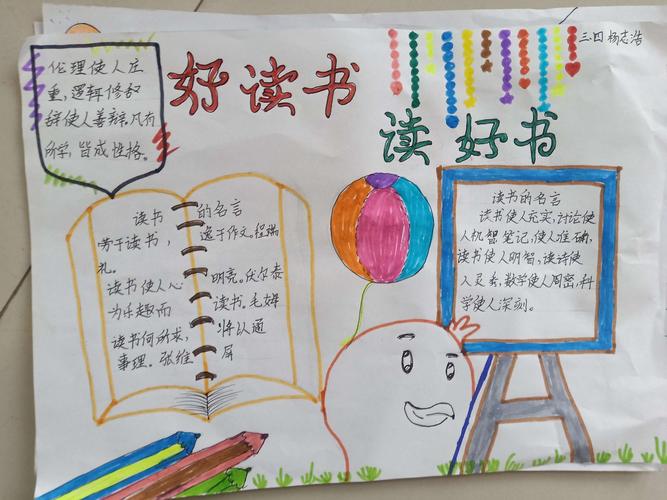 三.四 杨志浩
好读书
读好书
伦理使人庄
重,逻辑修
辞使人善辩.凡有
所学,皆成性格。
读书的名言
劳于读书,逸于作文。程端
礼。
读书使人心明亮。伏尔泰
为乐趣而读书。毛姆
读书何所求,将以通
事理。张维屏
读书的名言
读书使人充实,讨论使
人机智笔记,使人准确,
读书使人明智,读诗使
人灵秀,数学使人周密,科
学使人深刻。